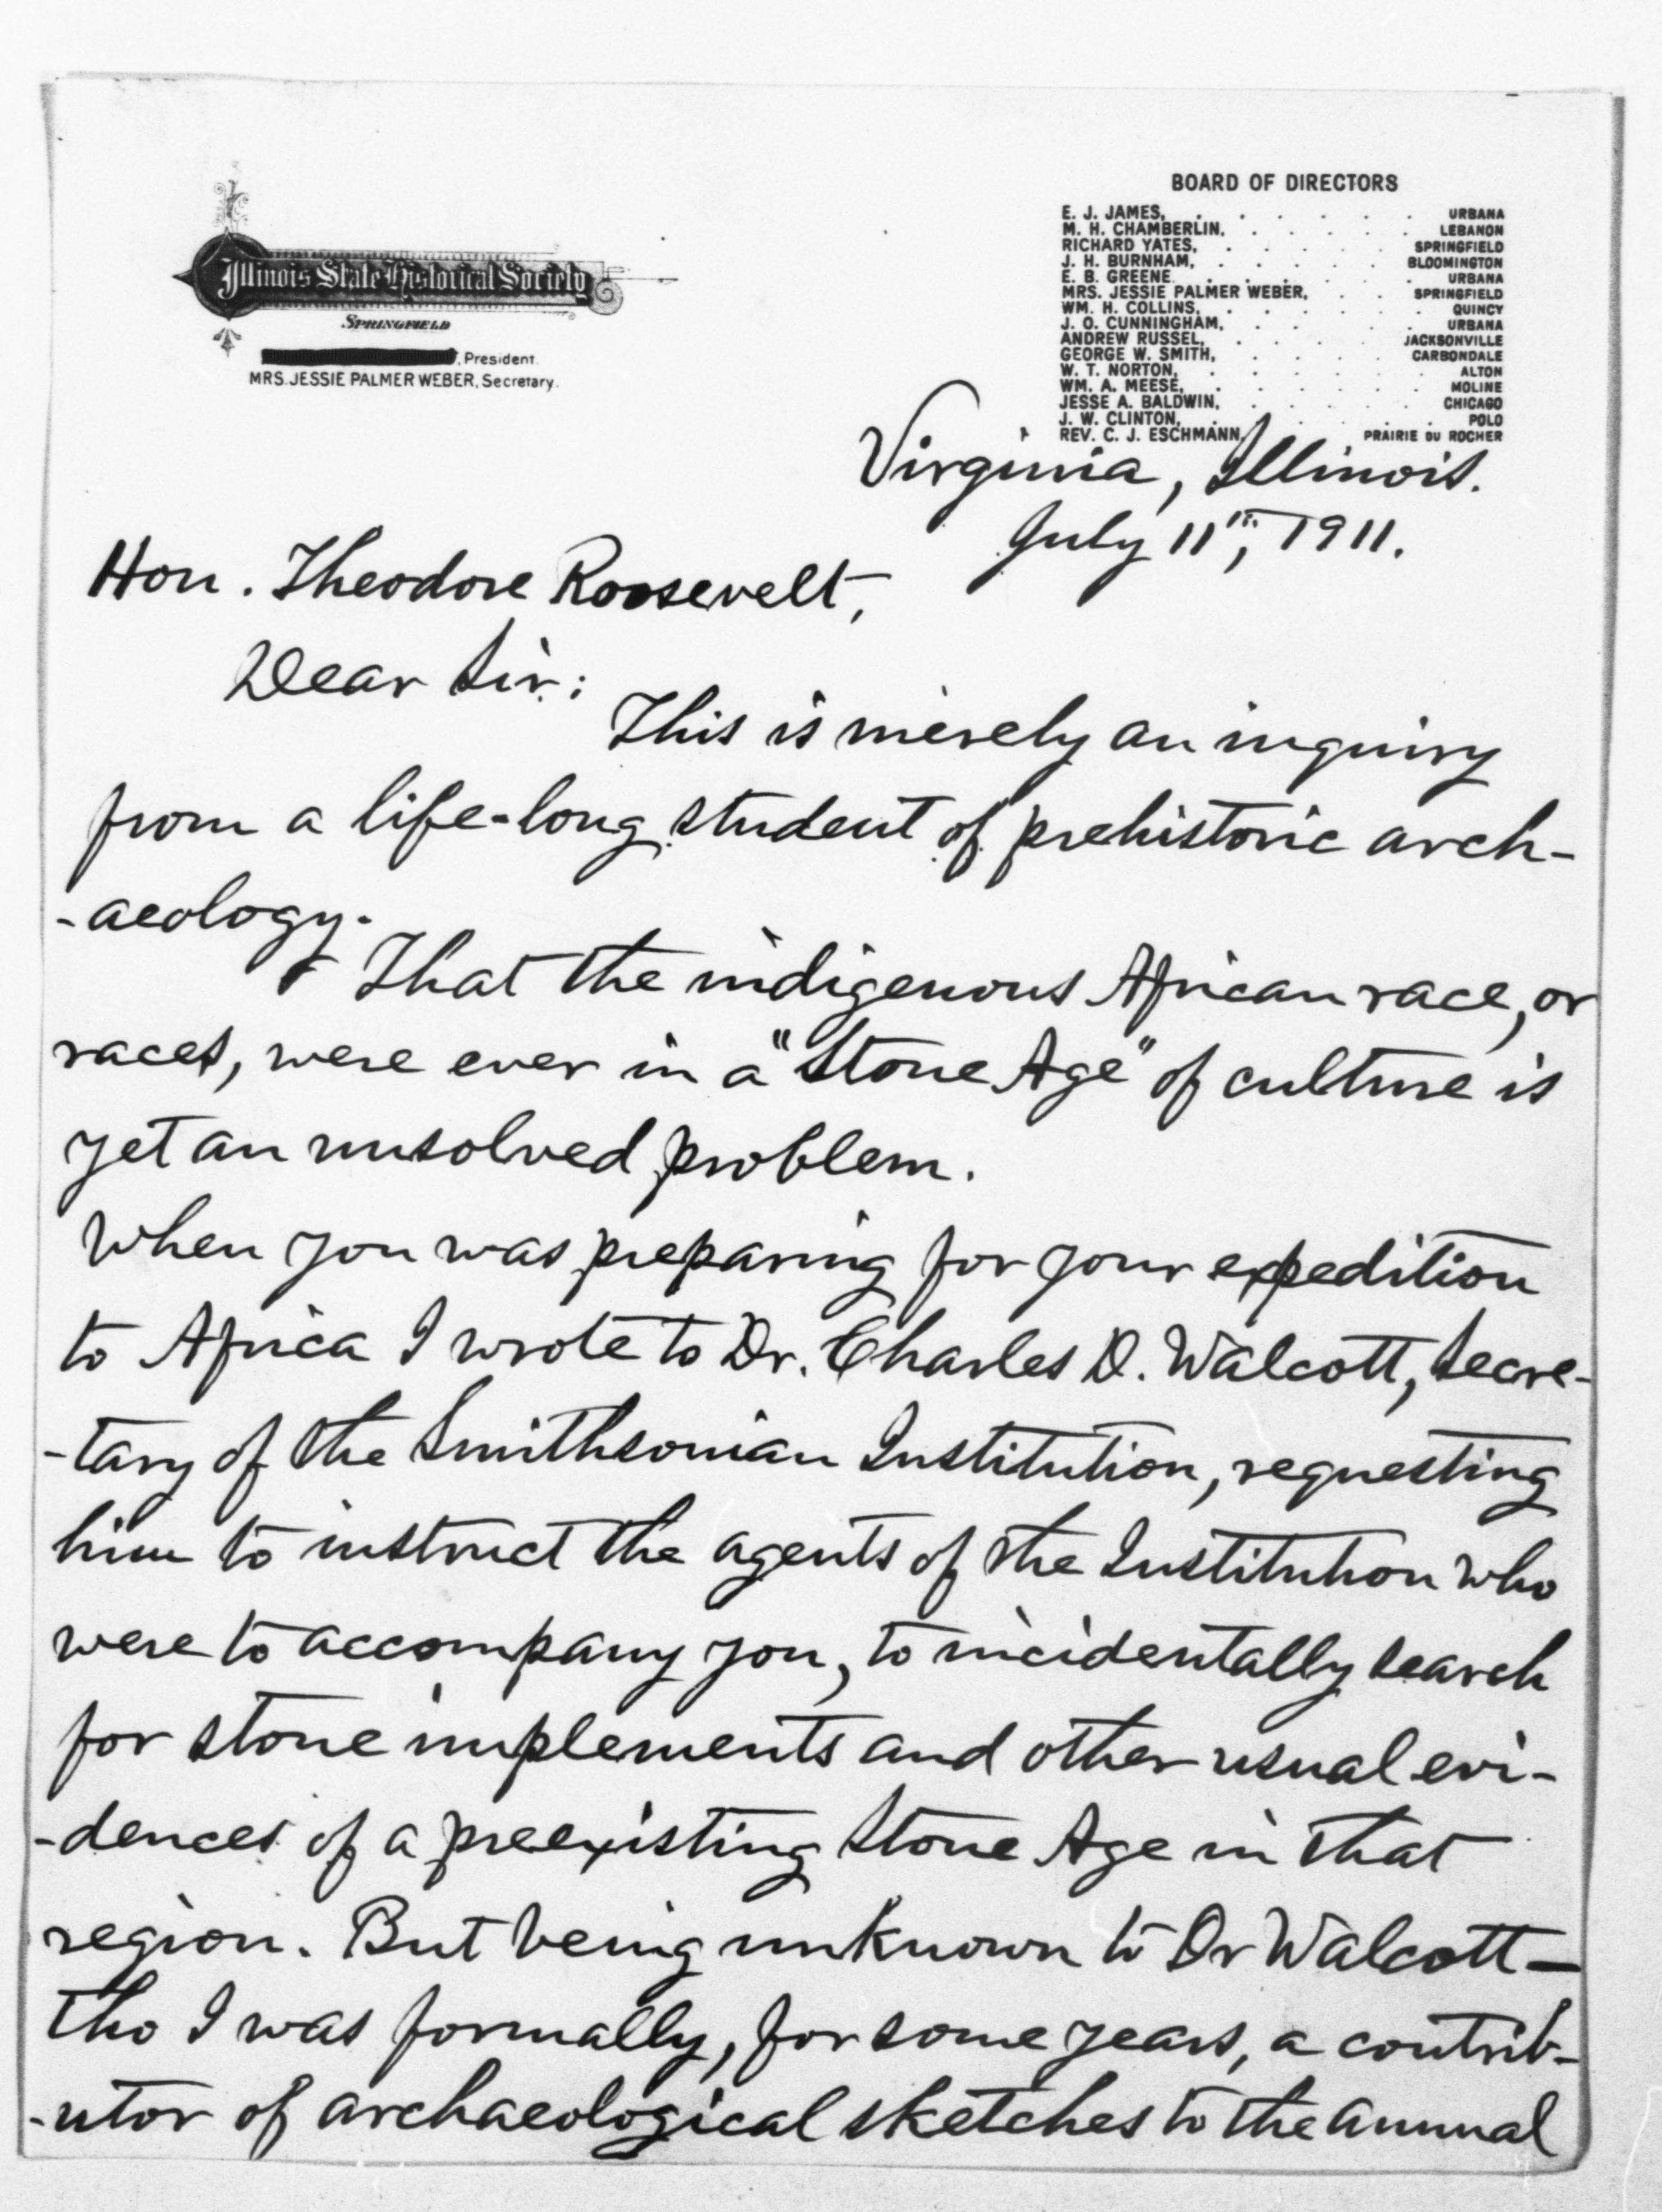 Illinois State Historical Society
SPRINGFIELD
, President.
MRS. JESSIE PALMER WEBER, Secretary.
BOARD OF DIRECTORS
E. J. JAMES, . . . . . . URBANA
M. H. CHAMBERLIN, . . . . . LEBANON
RICHARD YATES, . . . . . SPRINGFIELD
J. H. BURNHAM, . . . . . BLOOMINGTON
E. B. GREENE . . . . . URBANA
MRS. JESSIE PALMER WEBER, . . SPRINGFIELD
WM. H. COLLINS, . . . . . QUINCY
J. O. CUNNINGHAM, . . . . . URBANA
ANDREW RUSSEL, . . . . JACKSONVILLE
GEORGE W. SMITH, . . . . CARBONDALE
W. T. NORTON, . . . . . ALTON
WM. A. MEESE, . . . . . MOLINE
JESSE A. BALDWIN, . . . . . CHICAGO
J. W. CLINTON, . . . . . POLO
REV. C. J. ESCHMANN, PRAIRIE DU ROCHER
Virginia, Illinois.
July 11th, 1911.
Hon. Theodore Roosevelt,
Dear Sir:
This is merely an inquiry
from a life-long student of prehistoric arch-
-aeology.
That the indigenous African race, or
races, were ever in a "Stone Age" of culture is
yet an unsolved problem.
When you was preparing for your expedition
to Africa I wrote to Dr. Charles D. Walcott, Secre-
-tary of the Smithsonian Institution, requesting
him to instruct the agents of the Institution who
were to accompany you, to incidentally search
for stone implements and other usual evi-
-dences of a preexisting Stone Age in that
region. But being unknown to Dr Walcott—
tho I was formally, for some years, a contrib-
-utor of archaeological sketches to the annual